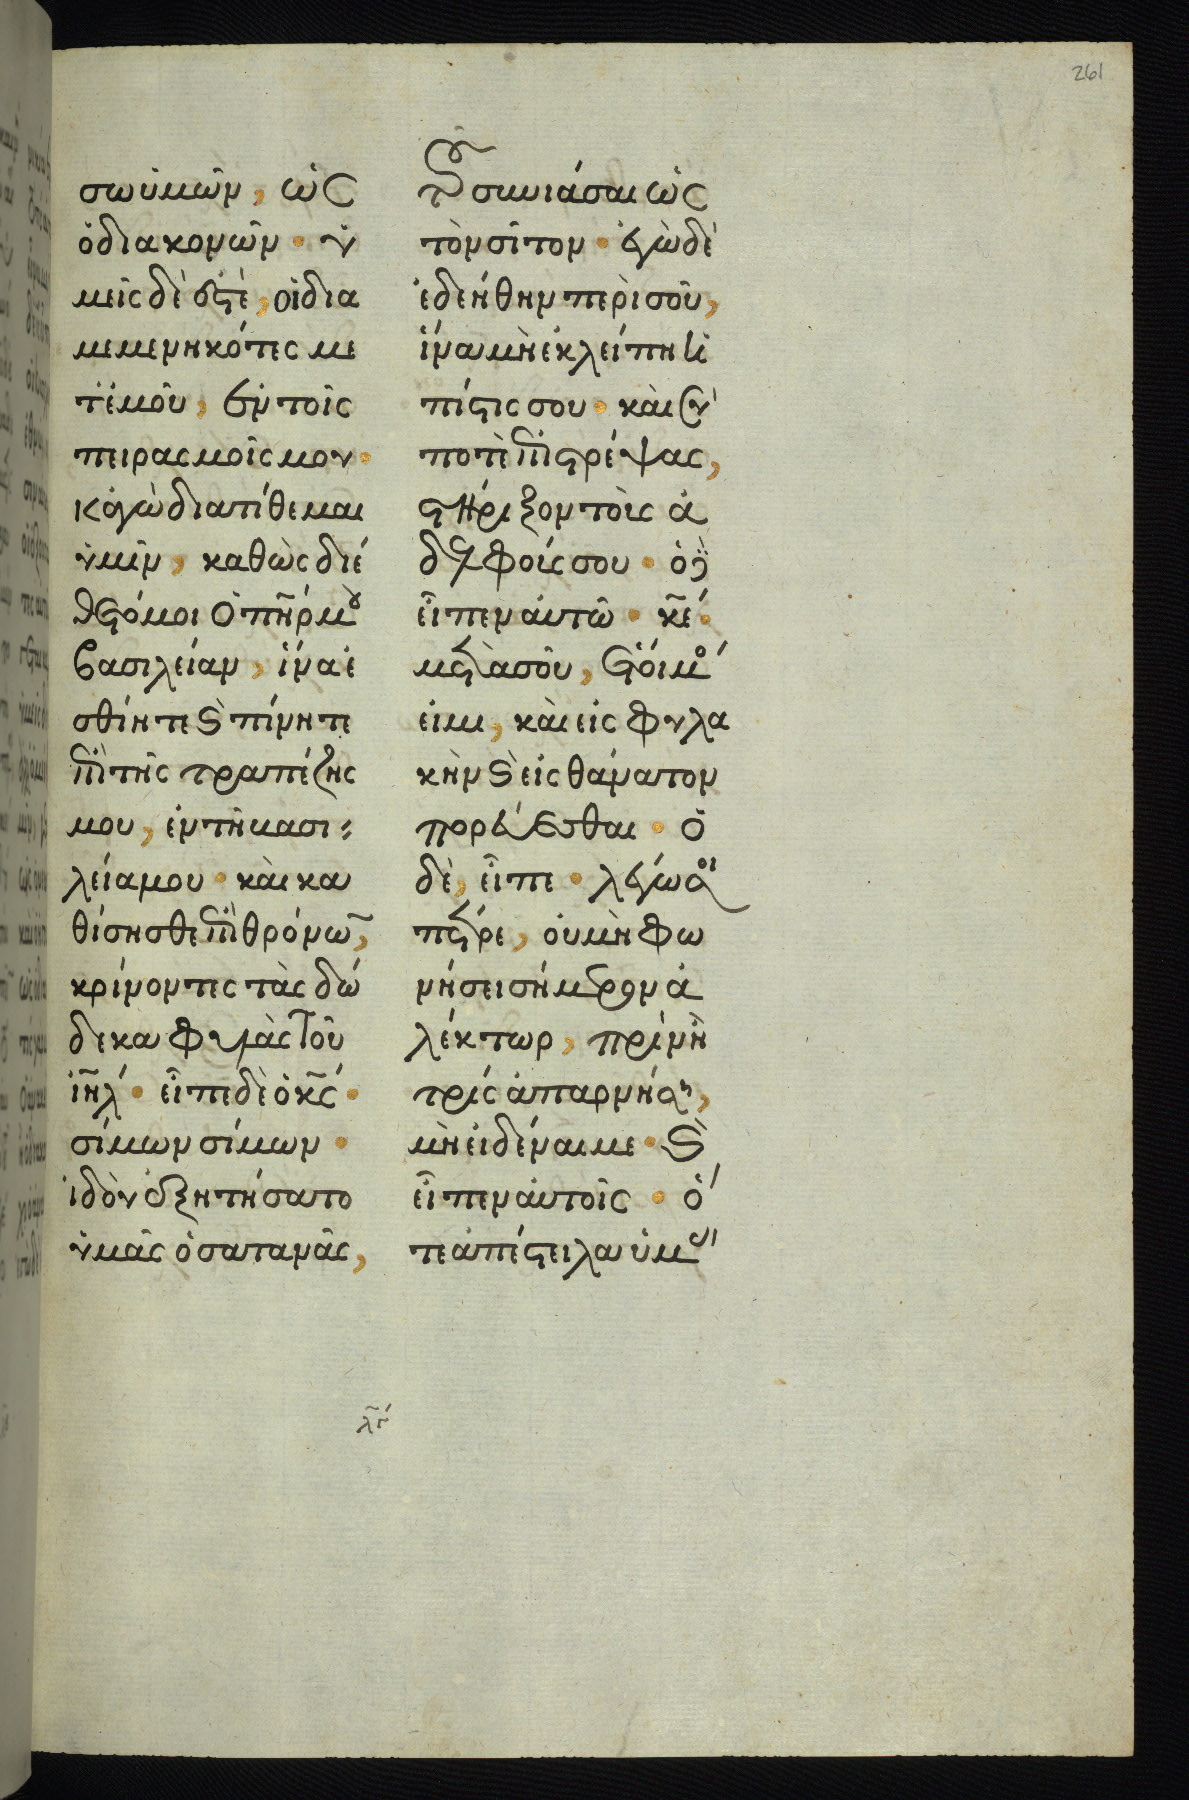 261
σω ὑμῶν, ὡς
ὁ διακονῶν · ὑ
μεῖς δέ ἐστέ, οἱ δια
μεμενηκότες με
τ' ἐμοῦ, ἐν τοῖς
πειρασμοῖς μου ·
κἀγὼ διατίθεμαι
ὑμῖν, καθὼς διέ
θετό μοι ὁ πηρ μου
βασιλείαν, ἵνα ἐ
σθίητε καὶ πίνητε
ἐπὶ τῆς τραπέζης
μου, ἐν τῆ βασι
λεία μου · καὶ κα
θίσησθε ἐπὶ θρόνων,
κρίνοντες τὰς δώ
δεκα φυλὰς τοῦ
ιηλ · εἶπε δὲ ὁ κς ·
σίμων σίμων ·
ἰδοὺ ἐξητήσατο
ὑμᾶς ὁ σατανᾶς,
τοῦ σινιάσαι ὡς
τὸν σῖτον · ἐγὼ δὲ
ἐδεήθην περὶ σοῦ,
ἵνα μὴ ἐκλείπη ἡ
πίστις σου · καὶ σύ
ποτε ἐπιστρέψας,
στήριξον τοὺς ἀ
δελφούς σου · ὁ δὲ
εἶπεν αὐτῶ · κε ·
μετὰ σοῦ, ἕτοιμός
εἰμι, καὶ εἰς φυλα
κὴν καὶ εἰς θάνατον
πορεύεσθαι · ὁ
δὲ, εἶπε · λέγω σοι
πέτρε, οὐ μὴ φω
νήσει σήμερον ἀ
λέκτωρ, πρὶν ἢ
τρίς ἀπαρνήση,
μὴ εἰδέναι με · καὶ
εἶπεν αὐτοῖς · ὅ
τε ἀπέστειλα ὑμᾶς